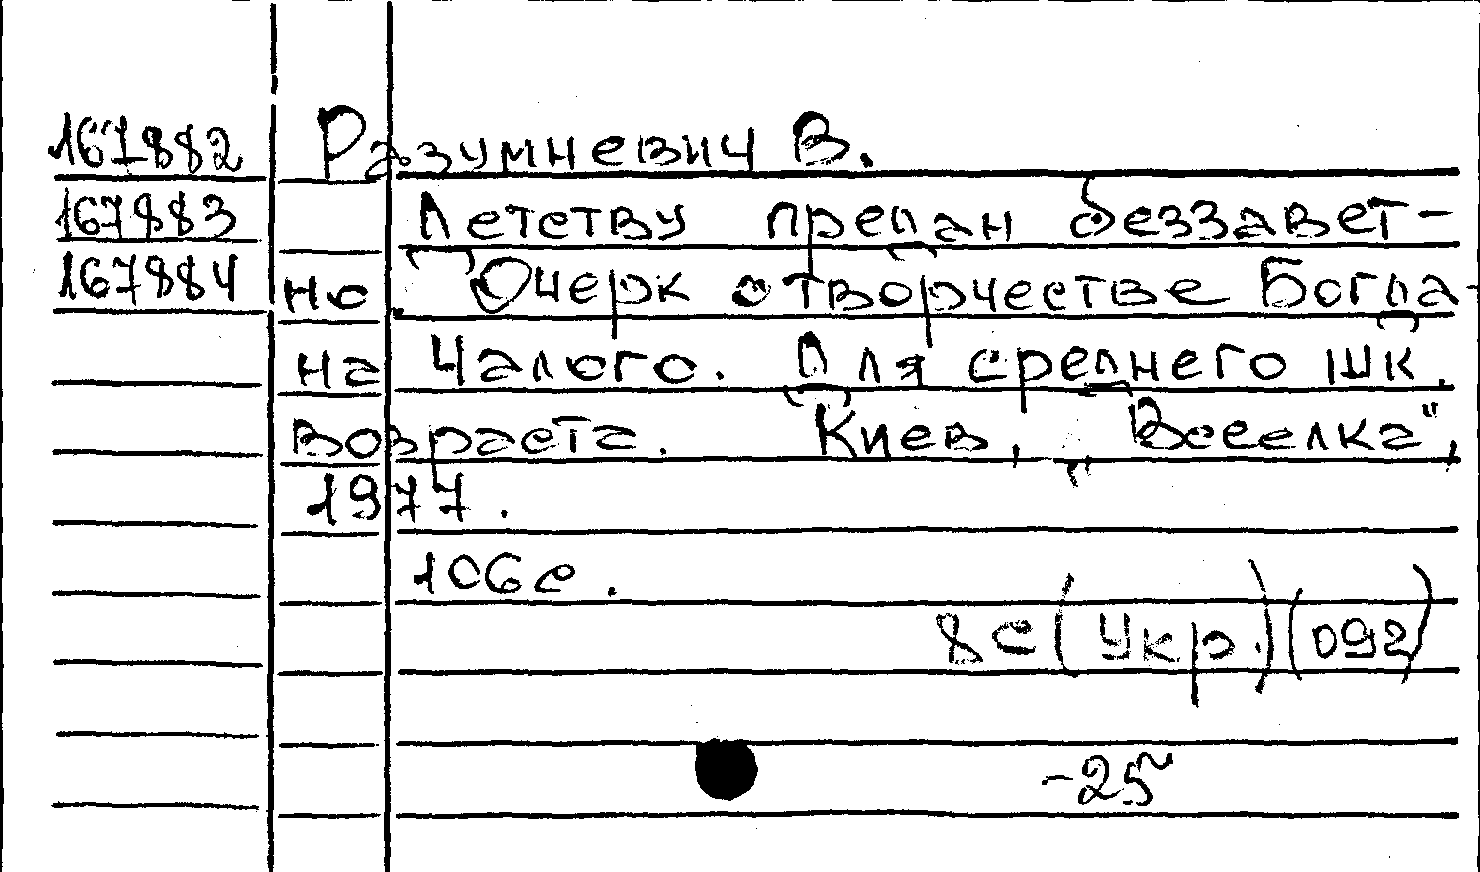 167882 Разумневич В.
167883 Детству предан беззавет-
167884 но. Очерк о творчестве Богда-
на Чалого. Для среднего шк.
возраста. Киев, "Веселка",
1977.
106 с.
8С(Укр.)(092)
-25